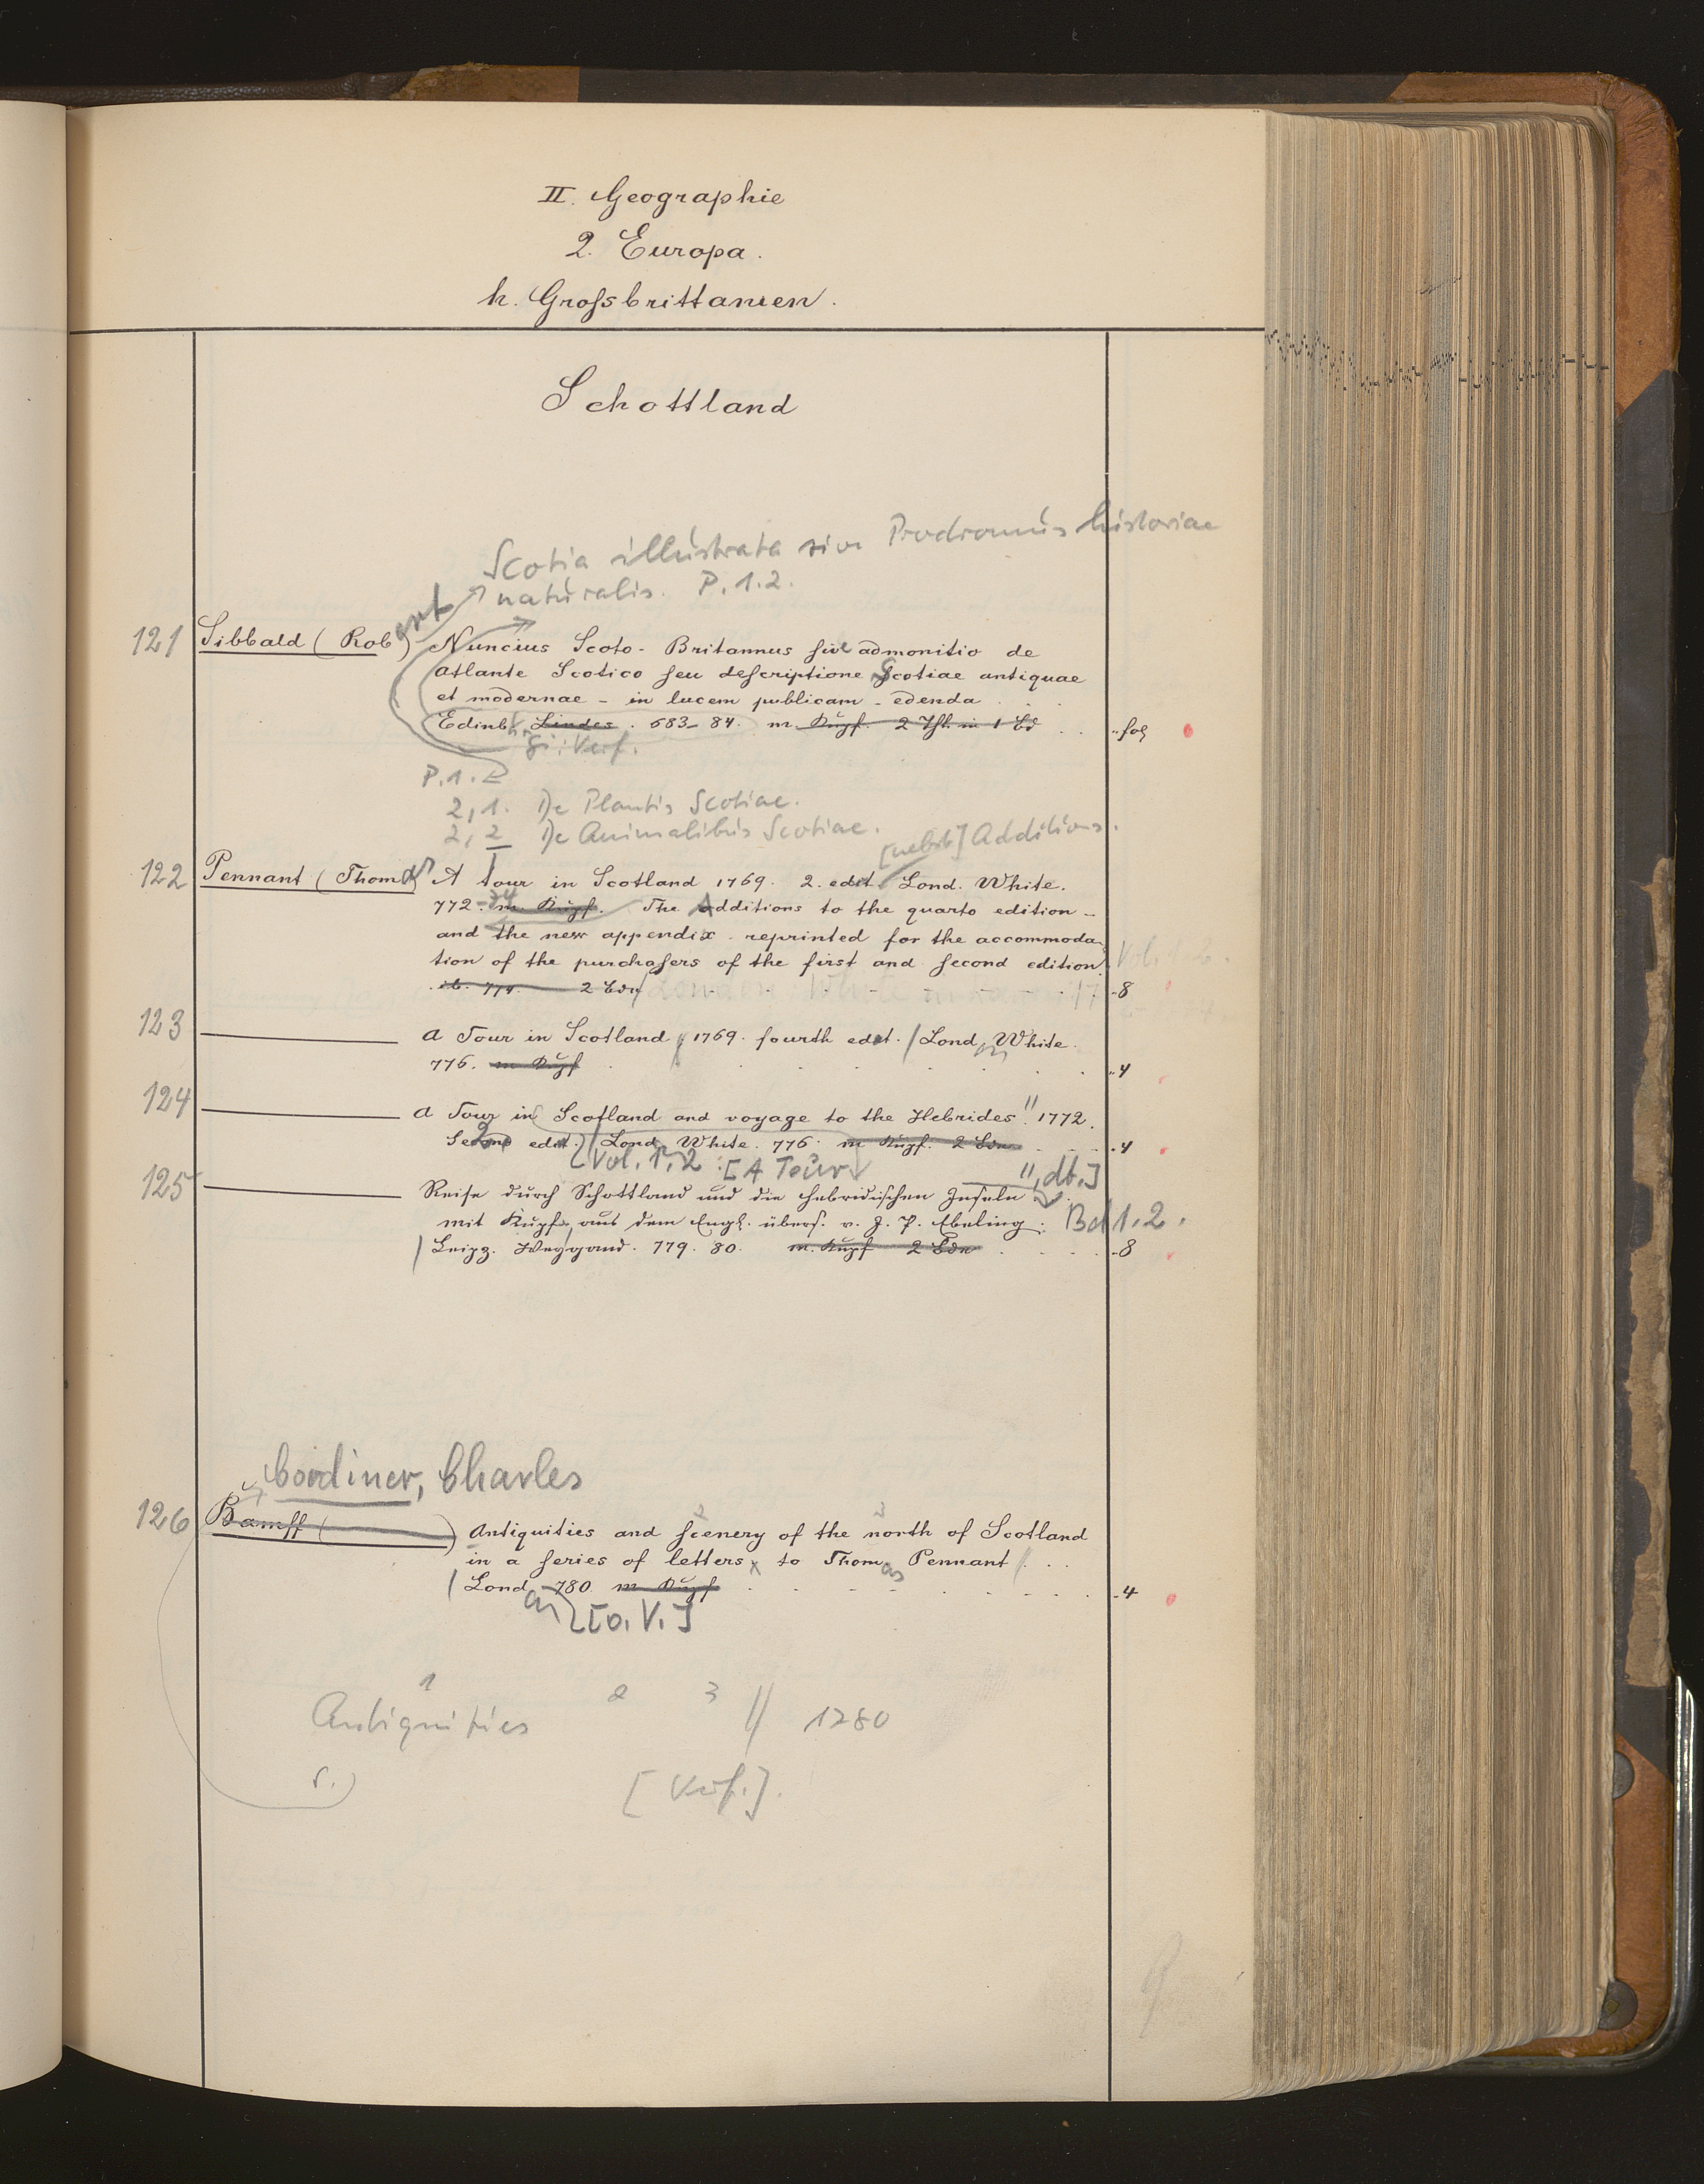 II. Geographie
2. Europa.
h. Grossbrittanien.
Schottland
Scotia illustrata sive Prodromus historiae
naturalis. P. 1.2.
121 Sibbald (Robert) Nuncius Scoto-Britannus sive admonitio de
atlante Scotico seu descriptione Scotiae antiquae
et modernae - in lucem publicam - edenda
Edinb. Lindes. 683-84. m. Kupf. 2 Thl. in 1 Bd .. fol
Verf.
P. 1.2
2,1. De Plantis Scotiae.
2,2 De Animalibus Scotiae.
[nebst] Additions.
122 Pennant (Thomas) A tour in Scotland 1769. 2. edit. Lond. White.
772-74 m. Kupf. The Additions to the quarto edition -
and the new appendix reprinted for the accommoda-
tion of the purchasers of the first and second edition.
ib. 774. 2 Bde 8
123 a Tour in Scotland 1769. fourth edit. Lond. White.
776. m Kupf 4
124 a Tour in Scotland and voyage to the Hebrides 1772.
Second edit. Lond. White. 776. m Kupf. 2 Bde 4
Vol. 1.2 [A Tour ", dt.]
125 Reise durch Schottland und die hebridischen Inseln
mit Kupf., aus dem Engl. übers. v. J. P. Ebeling. Bd 1.2.
Leipz. Weygand. 779. 80. m. Kupf 2 Bde 8
Cordiner, Charles
126 Bamff ( ) Antiquities and scenery of the north of Scotland
in a series of letters to Thomas Pennant
Lond. 780. m. Kupf 4
[o. V.]
1 2 3
Antiquities // 1780
[Verf.].